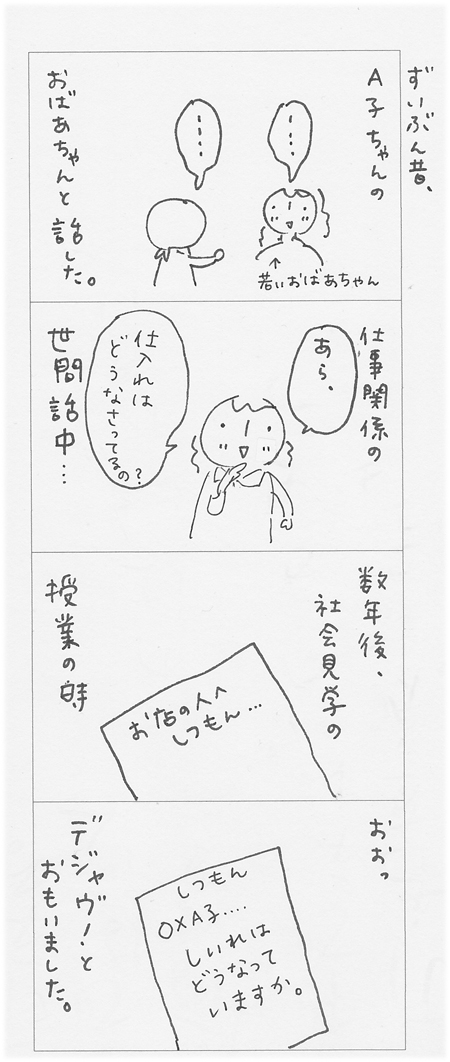 ずいぶん昔、
A子ちゃんの
おばあちゃんと話した。
・・・・
・・・・
↑
若いおばあちゃん
仕事関係の
世間話中…
あら、
仕入れは
どうなさってるの？
数年後、
社会見学の
授業の時
お店の人へ
しつもん…
おおっ
しつもん
○×A子….
しいれは
どうなって
いますか。
デジャヴ！と
おもいました。